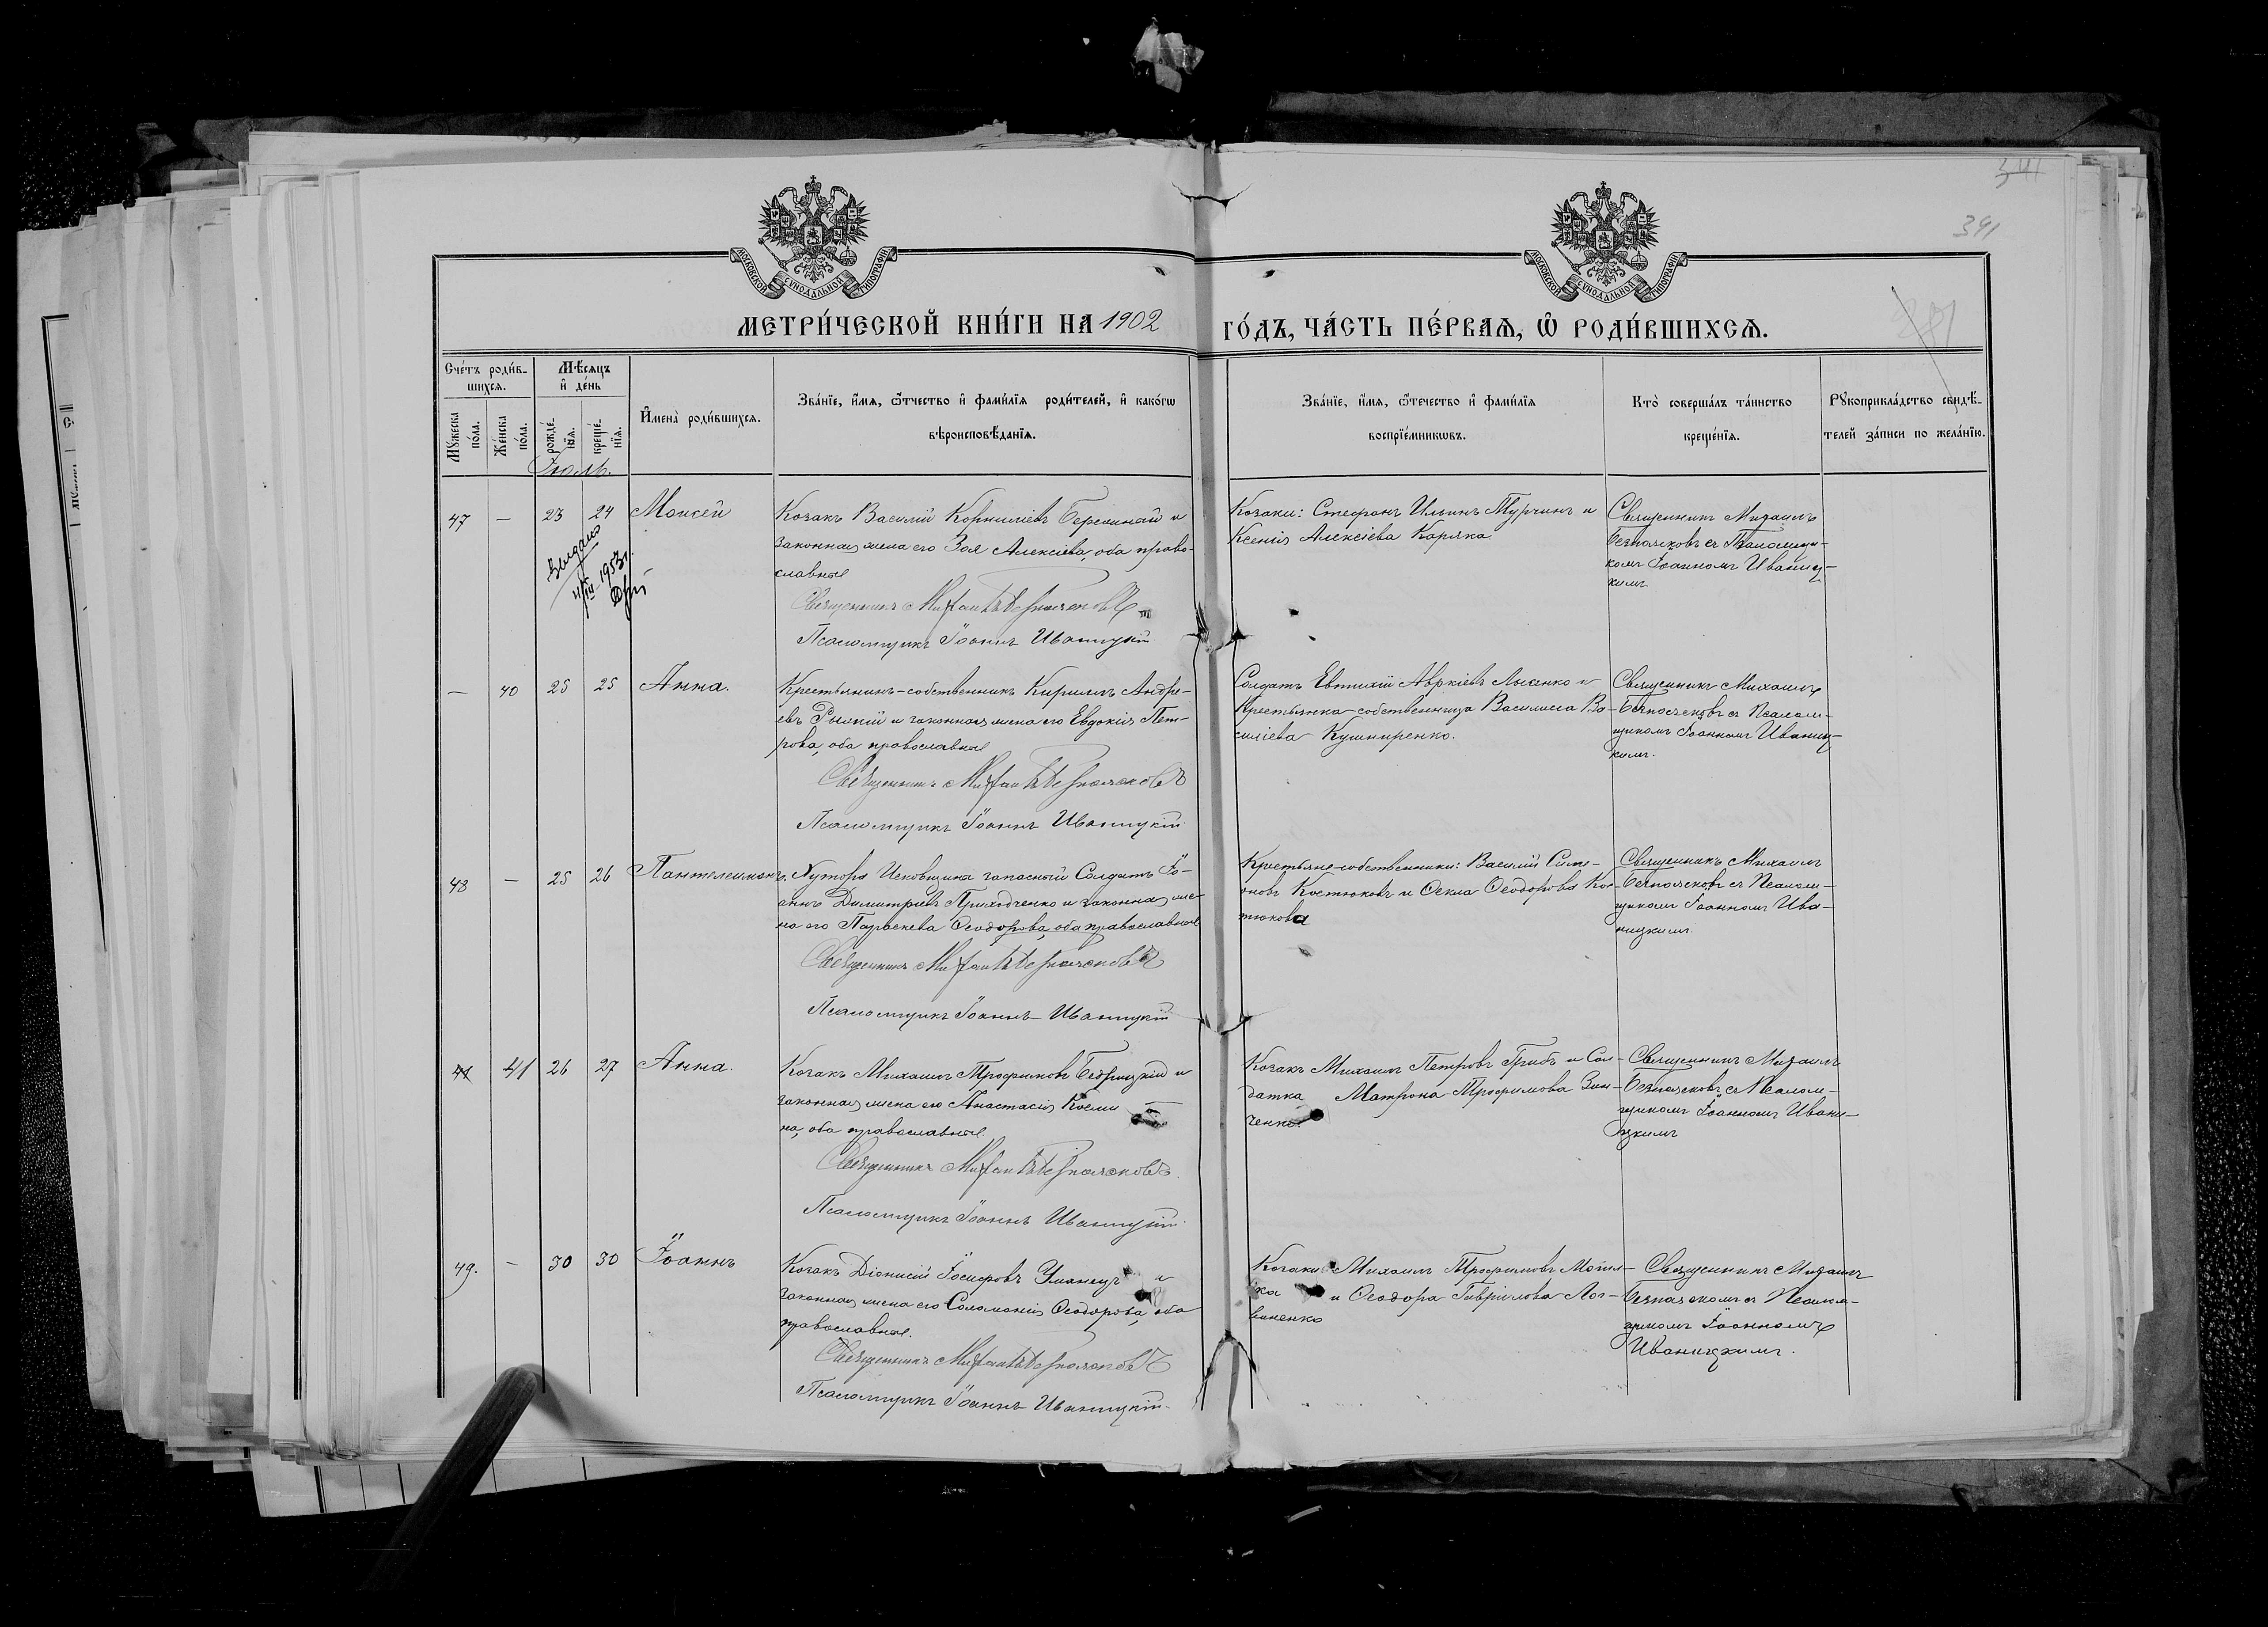 391
МОСКОВСКОЙ СУНОДАЛЬНОЙ ТИПОГРАФІИ
МОСКОВСКОЙ СУНОДАЛЬНОЙ ТИПОГРАФІИ
МЕТРИ́ЧЕСКОЙ КНИ́ГИ НА 1902 ГО́ДЪ, ЧА́СТЬ ПЕ́РВАѦ, Ѿ РОДИ́ВШИХСѦ.
Сче́тъ роди́в-
шихсѧ.
Мꙋжеска по́ла.
Же́нска по́ла.
Мѣ́сѧцъ
и҆ де́нь
рожде́-
нїѧ.
креще́-
нїѧ.
И҆мена̀ роди́вшихсѧ.
Зва́нїе, и҆́мѧ, ѻ҆́тчество и҆ фами́лїѧ роди́телей, и҆ како́гѡ
вѣроисповѣ́данїѧ.
Зва́нїе, и҆́мѧ, ѻ҆те́чество и҆ фами́лїѧ
воспрїе́мникѡвъ.
Кто̀ соверша́лъ та́инство
креще́нїѧ.
Рꙋкоприкла́дство свидѣ́-
телей за́писи по жела́нїю.
Іюль.
47 — 23 24 Моисей
Козакъ Василій Корниліевъ и
законная жена его Зоя Алексіева, оба право-
славные
Священникъ Михаилъ Безпоясковъ
Псаломщикъ Іоаннъ Иваницкій
Козаки: Стефанъ Ильинъ Турчинъ и
Ксенія Алексіева Каряка.
Священникъ Михаилъ
Безпоясковъ съ Псаломщи-
комъ Іоанномъ Иваниц-
кимъ
Видано
11/III 1953 г.
— 40 25 25 Анна.
Крестьянинъ-собственникъ Кириллъ Андре-
евъ и законная жена его Евдокія Пет-
рова, оба православные
Священникъ Михаилъ Безпоясковъ
Псаломщикъ Іоаннъ Иваницкій
Солдатъ Евтихій Авркіевъ Лысенко и
Крестьянка-собственница Василиса Ва-
силіева Кушниренко.
Священникъ Михаилъ
Безпоясковъ съ Псалом-
щикомъ Іоанномъ Иваниц-
кимъ.
48 — 25 26 Пантелеимонъ.
Хутора запасный Солдатъ Іо-
аннъ Димитріевъ Приходченко и законная же-
на его Параскева Ѳеодорова, оба православные
Священникъ Михаилъ Безпоясковъ
Псаломщикъ Іоаннъ Иваницкій
Крестьяне-собственники: Василій Симе-
оновъ Костюковъ и Ѳекла Ѳеодорова Кос-
тюкова
Священникъ Михаилъ
Безпоясковъ съ Псалом-
щикомъ Іоанномъ Ива-
ницкимъ.
41 26 27 Анна.
Козакъ Михаилъ Трофимовъ и
законная жена его Анастасія Косми-
на, оба православные.
Священникъ Михаилъ Безпоясковъ.
Псаломщикъ Іоаннъ Иваницкій.
Козакъ Михаилъ Петровъ Грибъ и Сол-
датка Матрона Трофимова Зин-
ченко.
Священникъ Михаилъ
Безпоясковъ съ Псалом-
щикомъ Іоанномъ Ивани-
цкимъ
49. — 30 30 Іоаннъ
Козакъ Діонисій Іосифовъ Уманецъ и
законная жена его Соломонія Ѳеодорова, оба
православные.
Священникъ Михаилъ Безпоясковъ
Псаломщикъ Іоаннъ Иваницкій.
Козаки Михаилъ Трофимовъ
и Ѳеодора Гаврилова Лог-
виненко
Священникъ Михаилъ
Безпоясковъ съ Псалом-
щикомъ Іоанномъ
Иваницкимъ.